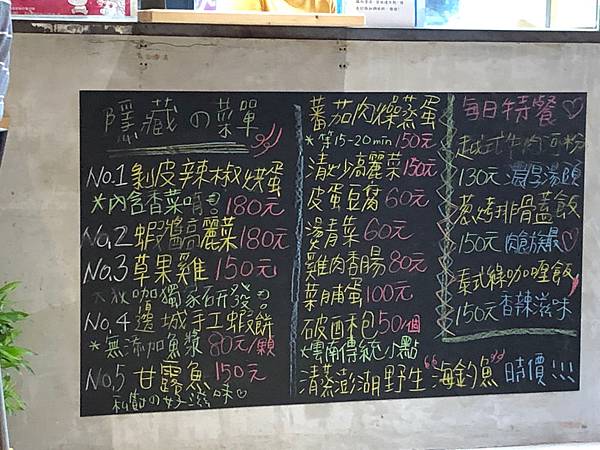 隱藏の菜單
No.1 剝皮辣椒烘蛋
*內含香菜唷 180元
No.2 蝦醬高麗菜 180元
No.3 草果雞 150元
大孜咖獨家研發
No.4 邊城手工蝦餅
*無添加魚漿 80元/顆
No.5 甘露魚 150元
私藏の好滋味
蕃茄肉燥蒸蛋
*等15-20min 150元
清炒高麗菜 150元
皮蛋豆腐 60元
燙青菜 60元
雞肉香腸 80元
菜脯蛋 100元
破酥包 50/個
*雲南傳統小點
清蒸澎湖野生"海釣魚" 時價!!!
每日特餐♡
越式牛肉河粉
130元 濃厚湯頭
蔥烤排骨蓋飯
150元 肉食族最♡
泰式綠咖喱飯
150元 香辣滋味